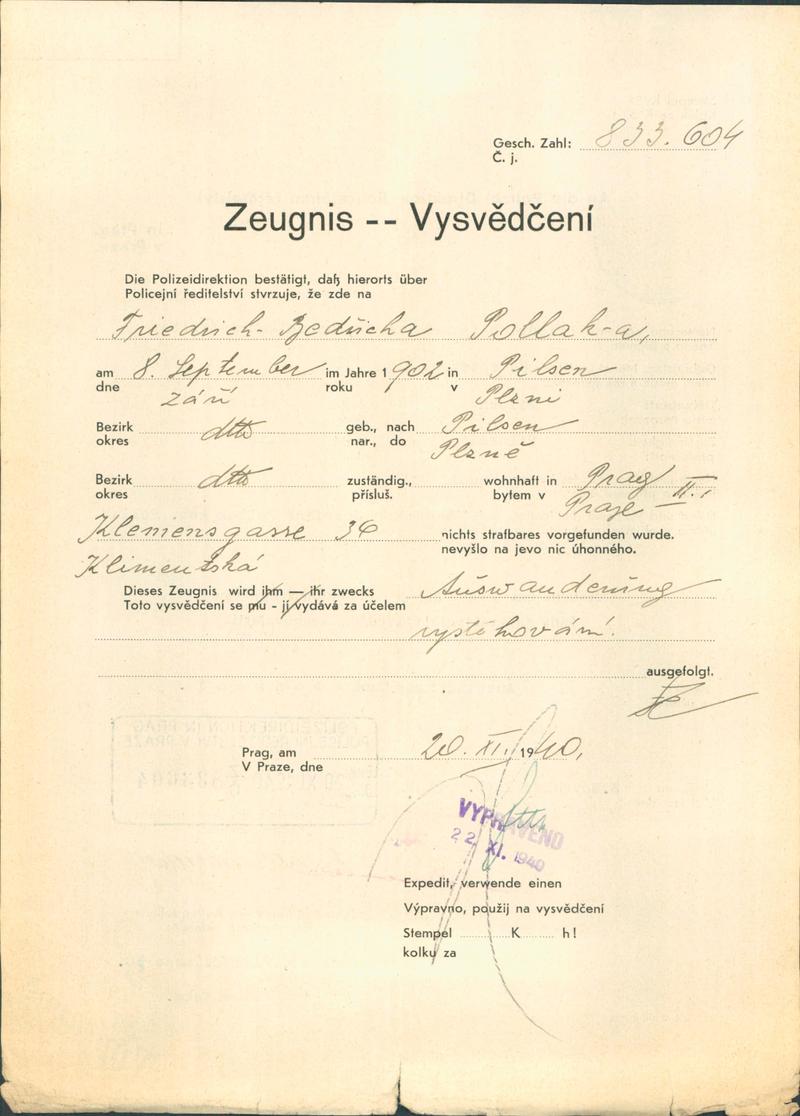 Gesch. Zahl: 833.604
Č. j.
Zeugnis -- Vysvědčení
Die Polizeidirektion bestätigt, daß hierorts über
Policejní ředitelství stvrzuje, že zde na
Friedrich- Bedřicha Pollak-a,
am 8. September im Jahre 1902 in Pilsen
dne září roku v Plzni
Bezirk dtto geb., nach Pilsen
okres nar., do Plzně
Bezirk dtto zuständig., wohnhaft in Prag II.,
okres přísluš. bytem v Praze
Klemensgasse 36 nichts strafbares vorgefunden wurde.
Klimentská nevyšlo na jevo nic úhonného.
Dieses Zeugnis wird ihm — ihr zwecks Auswanderung
Toto vysvědčení se mu - jí vydává za účelem
vystěhování.
ausgefolgt.
Prag, am 20. XI. 1940,
V Praze, dne
VYPRAVENO
22. XI. 1940
Expedit, verwende einen
Výpravno, použij na vysvědčení
Stempel K h!
kolku za